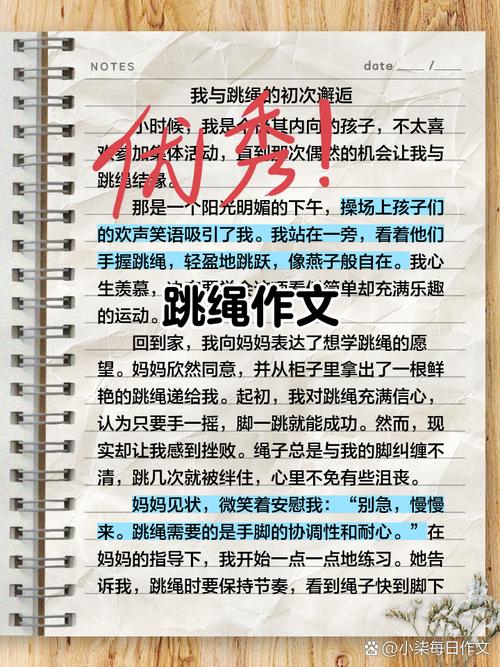 NOTES
date ____ / ____
我与跳绳的初次邂逅
小时候，我是个极其内向的孩子，不太喜
欢参加集体活动，直到那次偶然的机会让我与
跳绳结缘。
优秀！
那是一个阳光明媚的下午，操场上孩子们
的欢声笑语吸引了我。我站在一旁，看着他们
手握跳绳，轻盈地跳跃，像燕子般自在。我心
生羡慕，简单却充满乐趣
的运动。
跳绳作文
回到家，我向妈妈表达了想学跳绳的愿
望。妈妈欣然同意，并从柜子里拿出了一根鲜
艳的跳绳递给我。起初，我对跳绳充满信心，
认为只要手一摇，脚一跳就能成功。然而，现
实却让我感到挫败。绳子总是与我的脚纠缠不
清，跳几次就被绊住，心里不免有些沮丧。
妈妈见状，微笑着安慰我：“别急，慢慢
来。跳绳需要的是手脚的协调性和耐心。”在
妈妈的指导下，我开始一点一点地练习。她告
诉我，跳绳时要保持节奏，看到绳子快到脚下
@小柒每日作文